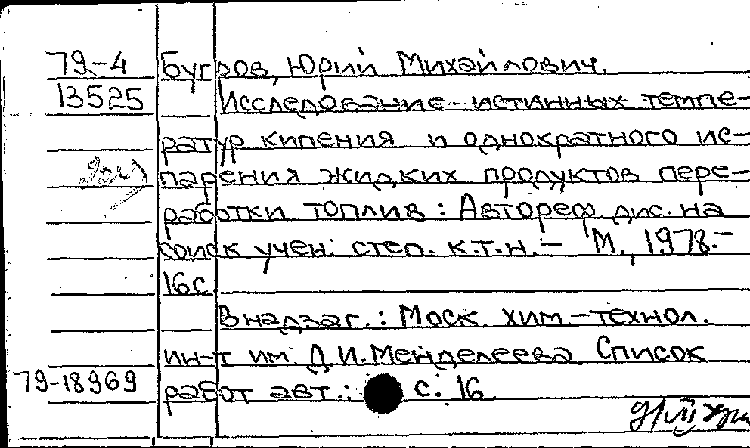 79-4 Бугров, Юрий Михайлович.
13525 Исследование истинных темпе-
ратур кипения и однократного ис-
парения жидких продуктов пере-
работки топлив: Автореф. дис. на
соиск учен. степ. к.т.н. – М., 1978.–
16с.
В надзаг.: Моск. хим.-технол.
ин-т им. Д.И. Менделеева Список
79-18969 работ авт.: с. 16